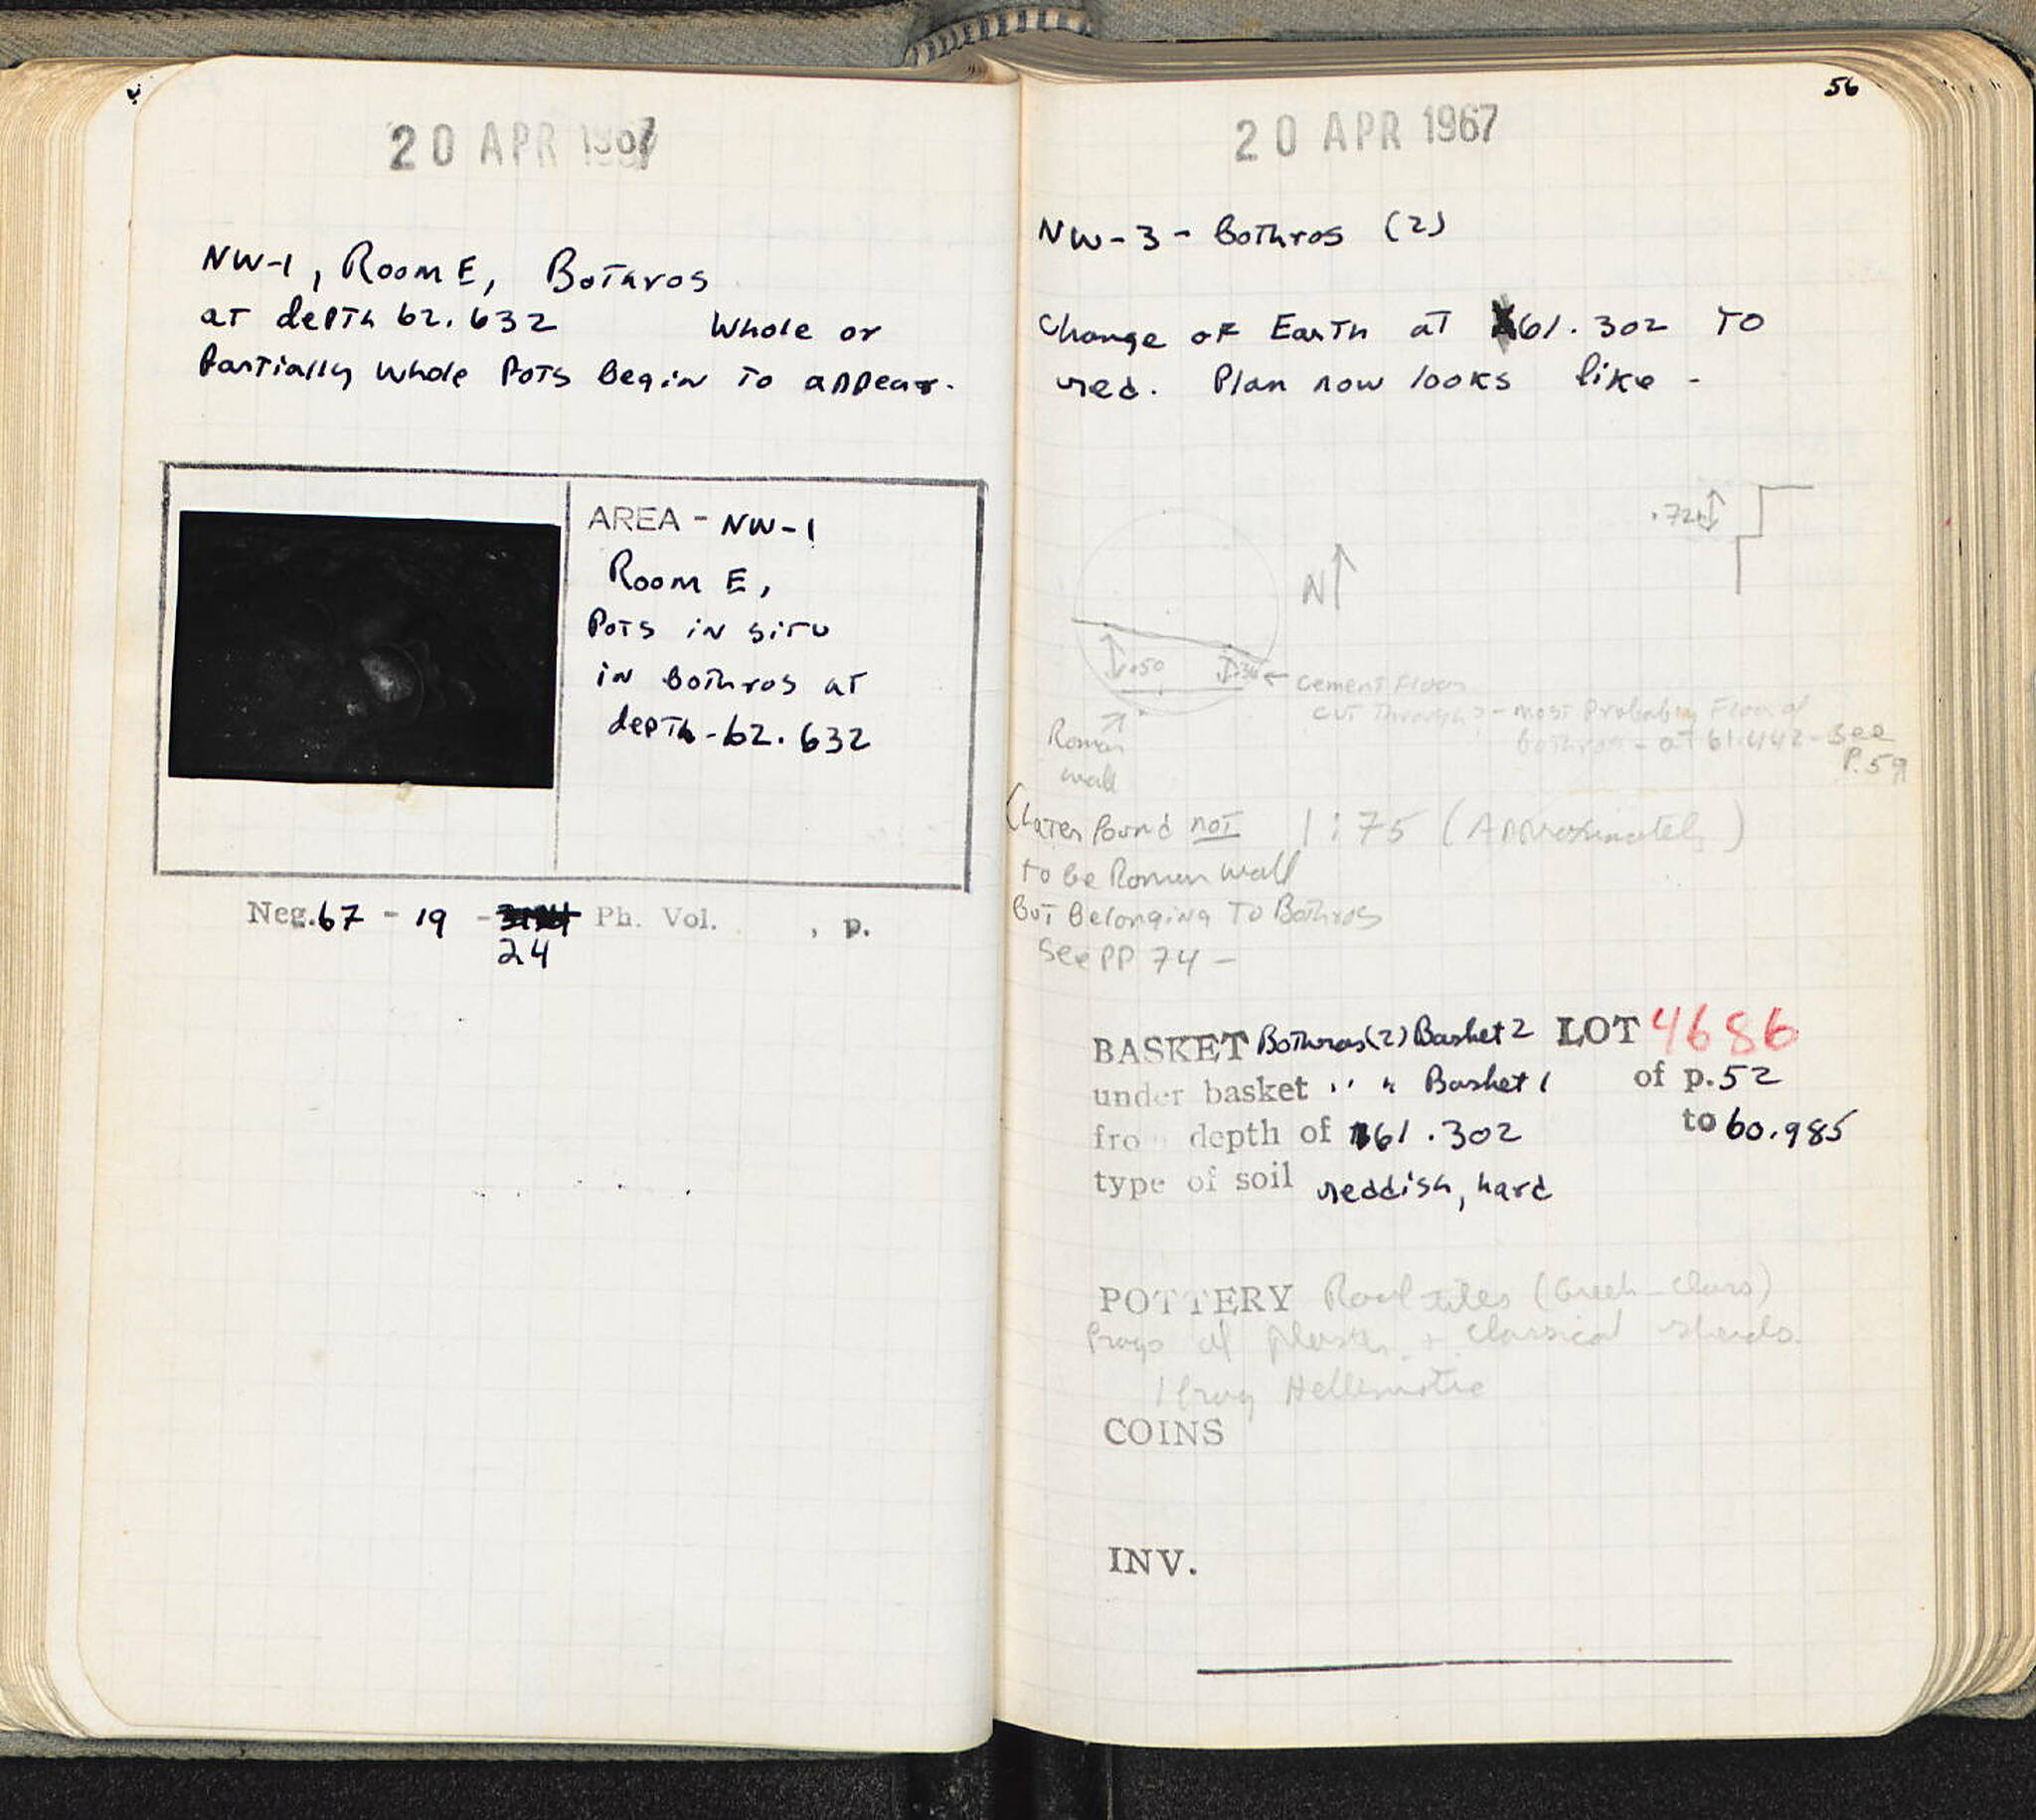 20 APR 1967
NW-1, Room E, Bothros
at depth 62.632 Whole or
Partially whole Pots Begin to appear.
AREA - NW-1
Room E,
Pots in situ
in Bothros at
depth - 62.632
Neg. 67 - 19 - Ph. Vol. , p.
24
56
20 APR 1967
NW-3 - Bothros (2)
Change of Earth at 61.302 to
red. Plan now looks like -
.72
N
.50
.36
← Cement Floor
cut through? - most Probably Floor of
bothros - at 61.442 - see
P. 59
Roman
wall
(Later found not
to be Roman wall
But Belonging to Bothros
See PP 74 -
1:75 (Approximately)
BASKET Bothros (2) Basket 2 LOT 4686
under basket " " Basket 1 of p. 52
from depth of 61.302 to 60.985
type of soil reddish, hard
POTTERY Roof tiles (Greek - Class)
frags of plaster + Classical sherds.
1 frag Hellenistic
COINS
INV.